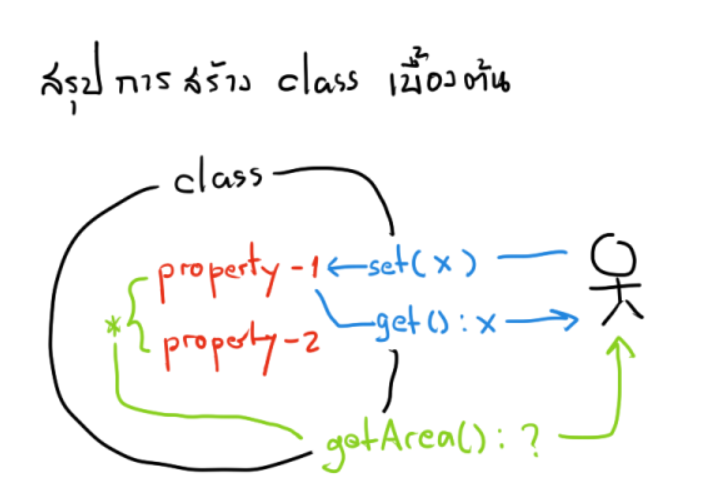 สรุป การ สร้าง class เบื้องต้น
class
property-1 ←set(x)
get():x
* { property-2
getArea():?